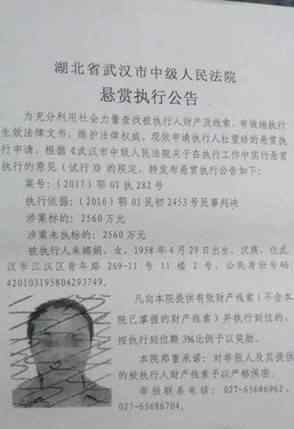 湖北省武汉市中级人民法院
悬赏执行公告
为充分利用社会力量查找被执行人财产及线索，有效地执行
生效法律文书，维护法律权威，现依申请执行人杜望娇的悬赏执
行申请，根据《武汉市中级人民法院关于在执行工作中实行悬赏
执行的意见（试行）》的规定，特发布悬赏执行公告如下：
案号：（2017）鄂01执282号
执行依据：（2016）鄂01民初2453号民事判决
涉案标的：2560万元
涉案未执标的：2560万元
被执行人朱 ，女，1958年4月29日出生，汉族，住武
汉市江汉区青年路269-11号11楼2号，公民身份号码
420103195804293749。
凡向本院提供有效财产线索（不含本
院已掌握的财产线索）并执行到位的，
按执行到位额3%比例予以奖励。
本院郑重承诺：对举报人及其提供
的被执行人财产线索予以严格保密。
举报联系电话：027-65686962，
027-65686704。